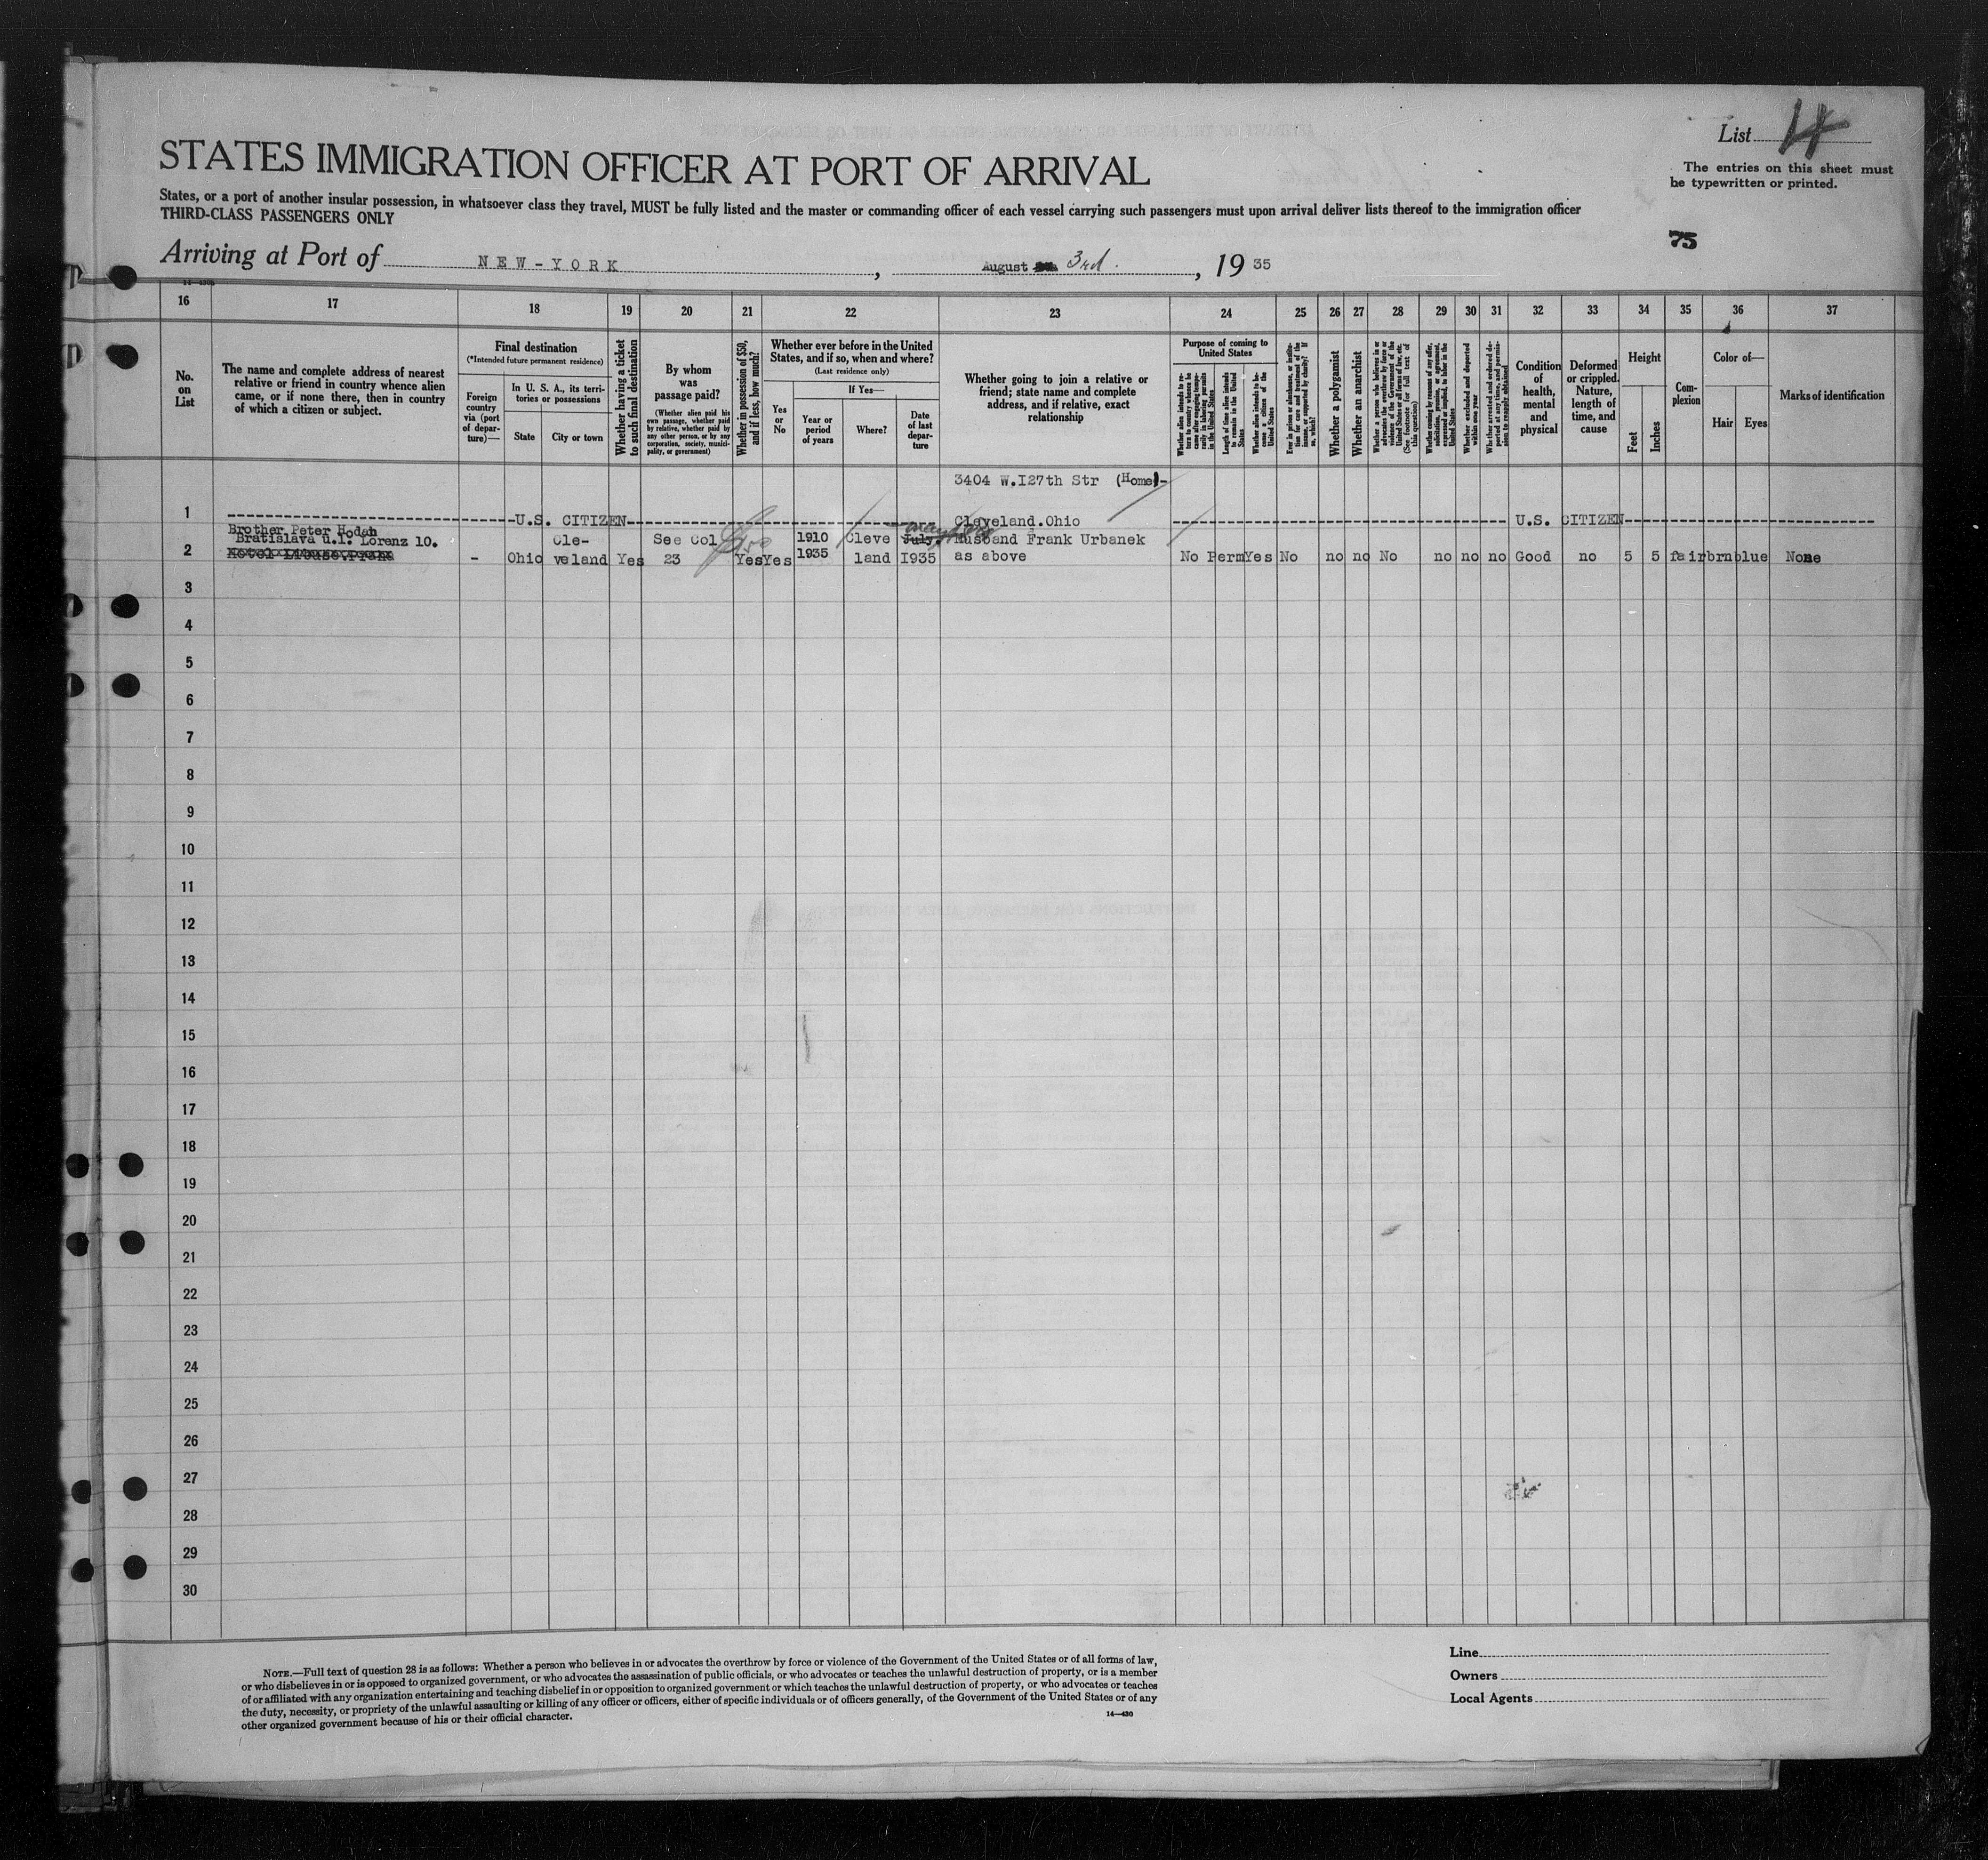 List 4
STATES IMMIGRATION OFFICER AT PORT OF ARRIVAL
The entries on this sheet must
be typewritten or printed.
States, or a port of another insular possession, in whatsoever class they travel, MUST be fully listed and the master or commanding officer of each vessel carrying such passengers must upon arrival deliver lists thereof to the immigration officer
THIRD-CLASS PASSENGERS ONLY
75
Arriving at Port of NEW-YORK, August 3rd., 1935
16 17 18 19 20 21 22 23 24 25 26 27 28 29 30 31 32 33 34 35 36 37
No. on List
The name and complete address of nearest
relative or friend in country whence alien
came, or if none there, then in country
of which a citizen or subject.
Final destination
(*Intended future permanent residence)
Foreign
country
via (port
of depar-
ture)—
In U. S. A., its terri-
tories or possessions
State
City or town
Whether having a ticket
to such final destination
By whom
was
passage paid?
(Whether alien paid his
own passage, whether paid
by relative, whether paid by
any other person, or by any
corporation, society, munici-
pality, or government)
Whether in possession of $50,
and if less, how much?
Whether ever before in the United
States, and if so, when and where?
(Last residence only)
Yes
or
No
If Yes—
Year or
period
of years
Where?
Date
of last
depar-
ture
Whether going to join a relative or
friend; state name and complete
address, and if relative, exact
relationship
Purpose of coming to
United States
Whether alien intends to re-
turn to country whence he
came after engaging tempo-
rarily in laboring pursuits
in the United States
Length of time alien intends
to remain in the United
States
Whether alien intends to be-
come a citizen of the
United States
Ever in prison or almshouse, or institu-
tion for care and treatment of the
insane, or supported by charity? If
so, which?
Whether a polygamist
Whether an anarchist
Whether a person who believes in or
advocates the overthrow by force or
violence of the Government of the
United States or all forms of law, etc.
(See footnote for full text of
this question)
Whether coming by reason of any offer,
solicitation, promise, or agreement,
expressed or implied, to labor in the
United States
Whether excluded and deported
within one year
Whether arrested and ordered de-
ported at any time, and permis-
sion to reapply obtained
Condition
of
health,
mental
and
physical
Deformed
or crippled.
Nature,
length of
time, and
cause
Height
Feet
Inches
Com-
plexion
Color of—
Hair
Eyes
Marks of identification
3404 W.I27th Str (Home)-
1 U.S. CITIZEN Cleveland.Ohio U.S. CITIZEN
Brother Peter Hodah
Bratislava u.l. Lorenz 10. Cle- See Col $50 1910 Cleve July. Husband Frank Urbanek
2 - Ohio veland Yes 23 Yes Yes 1935 land I935 as above No Perm Yes No no no No no no no Good no 5 5 fair brn blue None
3
4
5
6
7
8
9
10
11
12
13
14
15
16
17
18
19
20
21
22
23
24
25
26
27
28
29
30
NOTE.—Full text of question 28 is as follows: Whether a person who believes in or advocates the overthrow by force or violence of the Government of the United States or of all forms of law,
or who disbelieves in or is opposed to organized government, or who advocates the assassination of public officials, or who advocates or teaches the unlawful destruction of property, or is a member
of or affiliated with any organization entertaining and teaching disbelief in or opposition to organized government or which teaches the unlawful destruction of property, or who advocates or teaches
the duty, necessity, or propriety of the unlawful assaulting or killing of any officer or officers, either of specific individuals or of officers generally, of the Government of the United States or of any
other organized government because of his or their official character.
14—430
Line
Owners
Local Agents